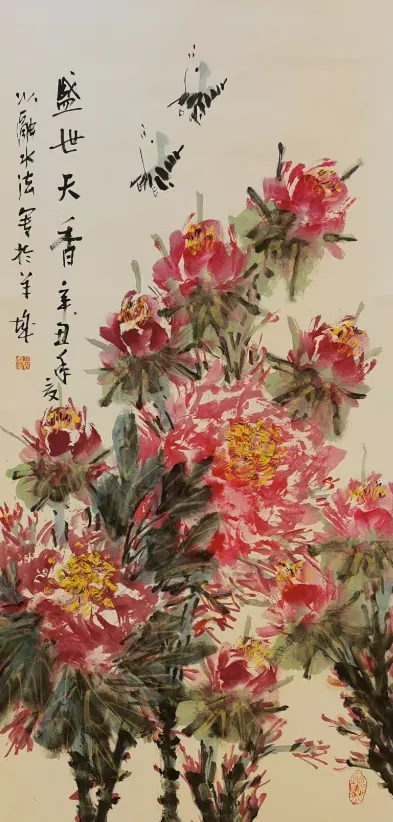 盛世天香 辛丑年夏
以融水法写于羊城